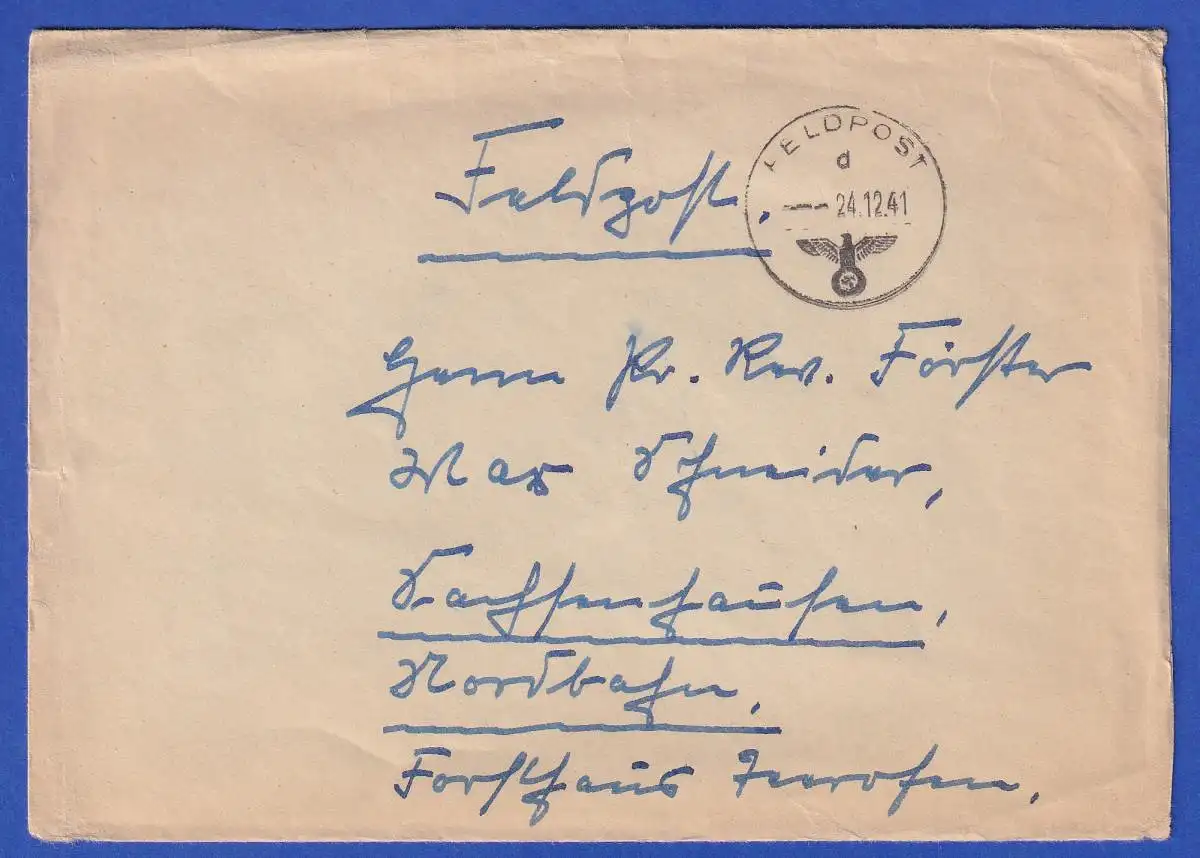 Feldpost.
FELDPOST
d
24.12.41
Herrn Pr. Rev. Förster
Max Schneider,
Sachsenhausen,
Nordbahn,
Forsthaus Teerofen.